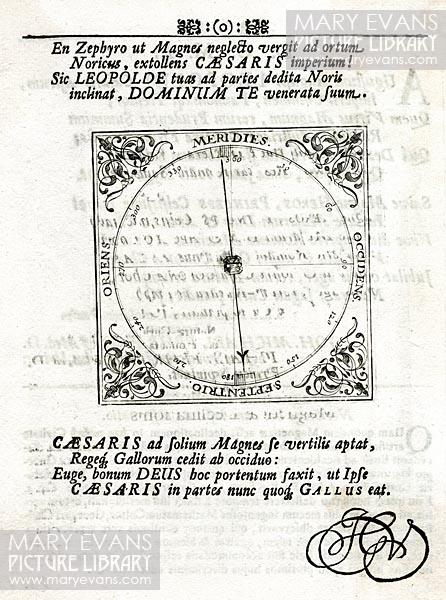 MARY EVANS
PICTURE LIBRARY
www.maryevans.com
:(0):
En Zephyro ut Magnes neglecto vergit ad ortum
Noricus, extollens CÆSARIS imperium!
Sic LEOPOLDE tuas ad partes dedita Noris
inclinat, DOMINUM TE venerata suum.
MERIDIES.
360
300
60
ORIENS.
270
90
OCCIDENS.
240
120
210
150
180
SEPTENTRIO.
CÆSARIS ad solium Magnes se vertilis aptat,
Regeq; Gallorum cedit ab occiduo:
Euge, bonum DEUS hoc portentum faxit, ut Ipse
CÆSARIS in partes nunc quoq; GALLUS eat.
MARY EVANS
PICTURE LIBRARY
www.maryevans.com